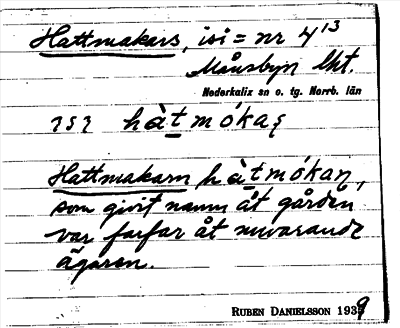 Hattmakars, isi = nr 4¹³
Månsbyn Skt.
Nederkalix sn o. tg. Norrb. län
hàt mókaş
Hattmakarn hàt mókan,
som givit namn åt gården
var farfar åt nuvarande
ägaren.
RUBEN DANIELSSON 1939